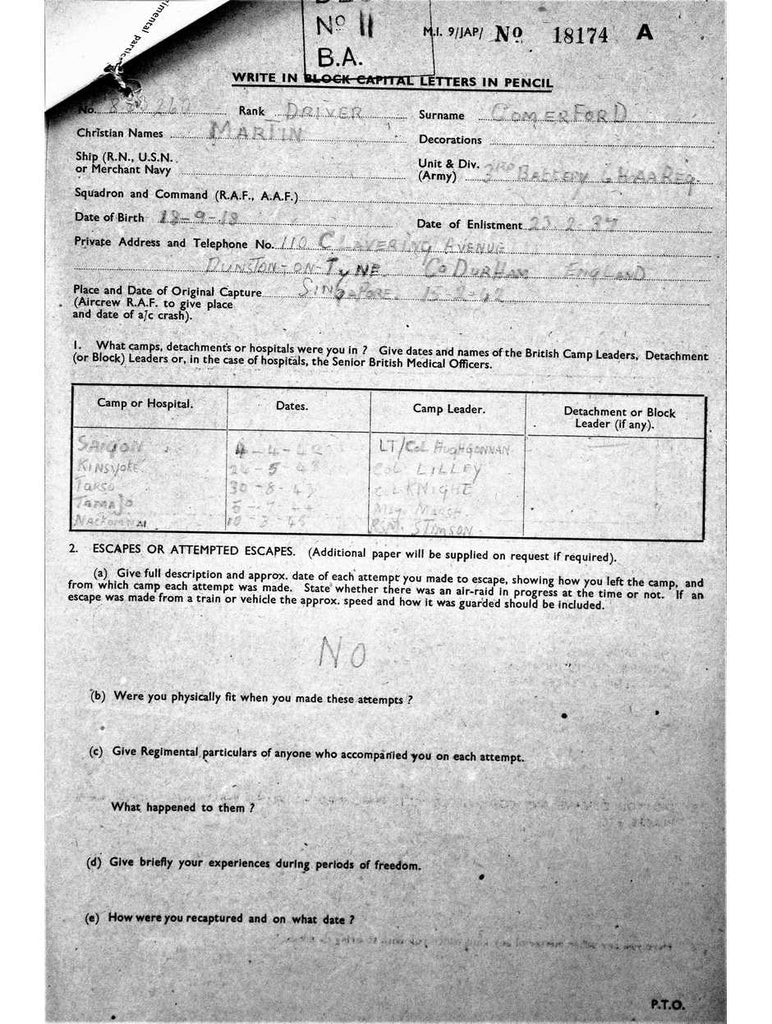 imental partic
Nº 11
B.A.
M.I. 9/JAP/ Nº 18174 A
WRITE IN BLOCK CAPITAL LETTERS IN PENCIL
No. Rank DRIVER Surname COMERFORD
Christian Names MARTIN Decorations
Ship (R.N., U.S.N. or Merchant Navy
Unit & Div. (Army) 3RD BATTERY 6 HAA REG
Squadron and Command (R.A.F., A.A.F.)
Date of Birth 18-9-18 Date of Enlistment 23.2.37
Private Address and Telephone No. 110 CLAVERING AVENUE
DUNSTON-ON-TYNE CO DURHAM ENGLAND
Place and Date of Original Capture SINGAPORE. 15-2-42
(Aircrew R.A.F. to give place
and date of a/c crash).
1. What camps, detachments or hospitals were you in ? Give dates and names of the British Camp Leaders, Detachment
(or Block) Leaders or, in the case of hospitals, the Senior British Medical Officers.
Camp or Hospital. Dates. Camp Leader. Detachment or Block
Leader (if any).
SAIGON 4-4-42 LT/COL HUGHGONNAN
KINSYOKE 24-5-43 COL LILLEY
TARSO 30-8-43 COL KNIGHT
TAMAJO MAJ. MARSH
10-3-45 RSM STIMSON
2. ESCAPES OR ATTEMPTED ESCAPES. (Additional paper will be supplied on request if required).
(a) Give full description and approx. date of each attempt you made to escape, showing how you left the camp, and
from which camp each attempt was made. State whether there was an air-raid in progress at the time or not. If an
escape was made from a train or vehicle the approx. speed and how it was guarded should be included.
NO
(b) Were you physically fit when you made these attempts ?
(c) Give Regimental particulars of anyone who accompanied you on each attempt.
What happened to them ?
(d) Give briefly your experiences during periods of freedom.
(e) How were you recaptured and on what date ?
P.T.O.